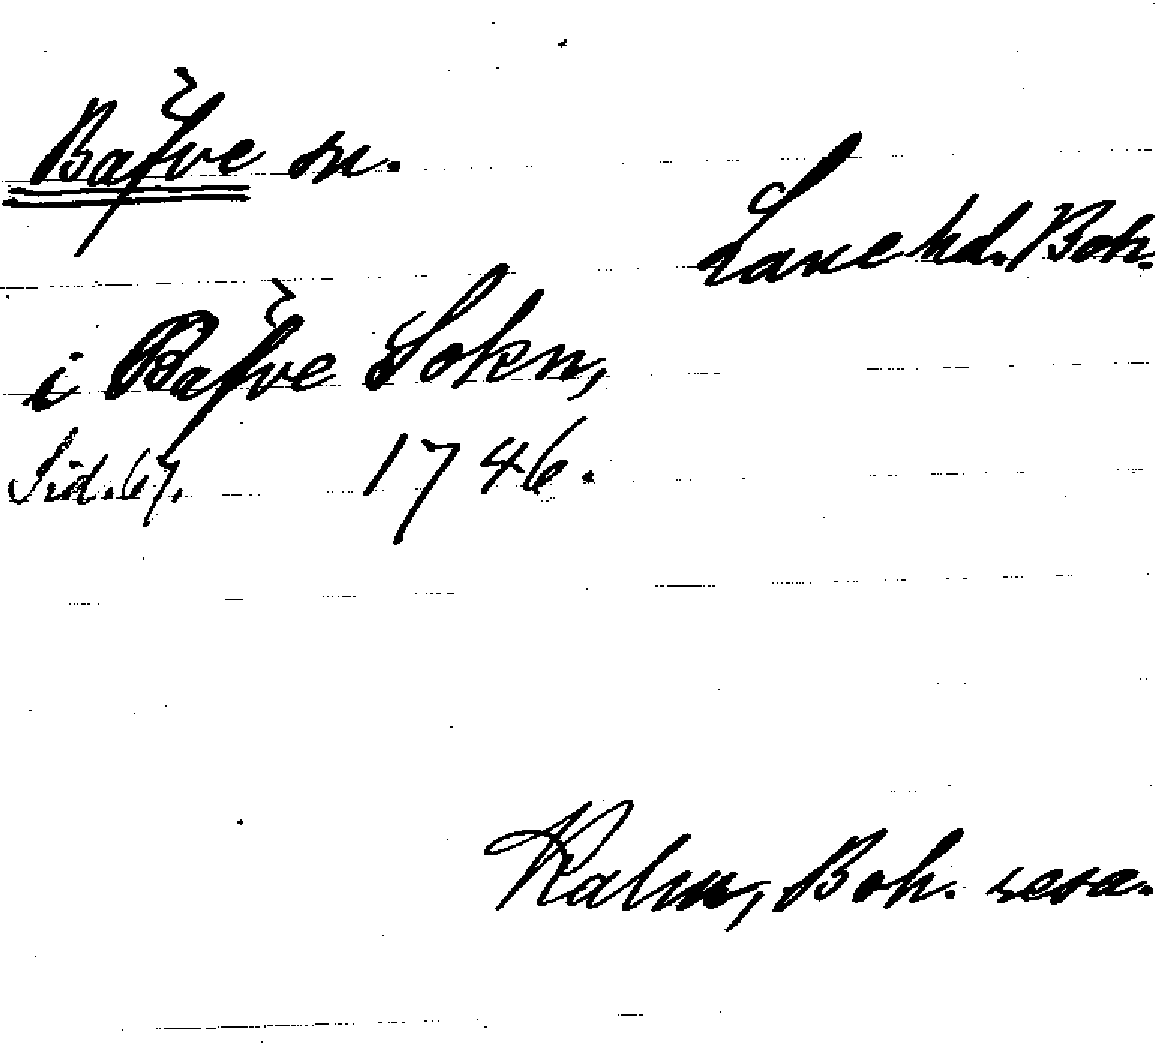 Bafve sn.
Lane hd. Boh.
i Bafve Sokn,
Sid. 67. 1746.
Kalm, Boh. resa.